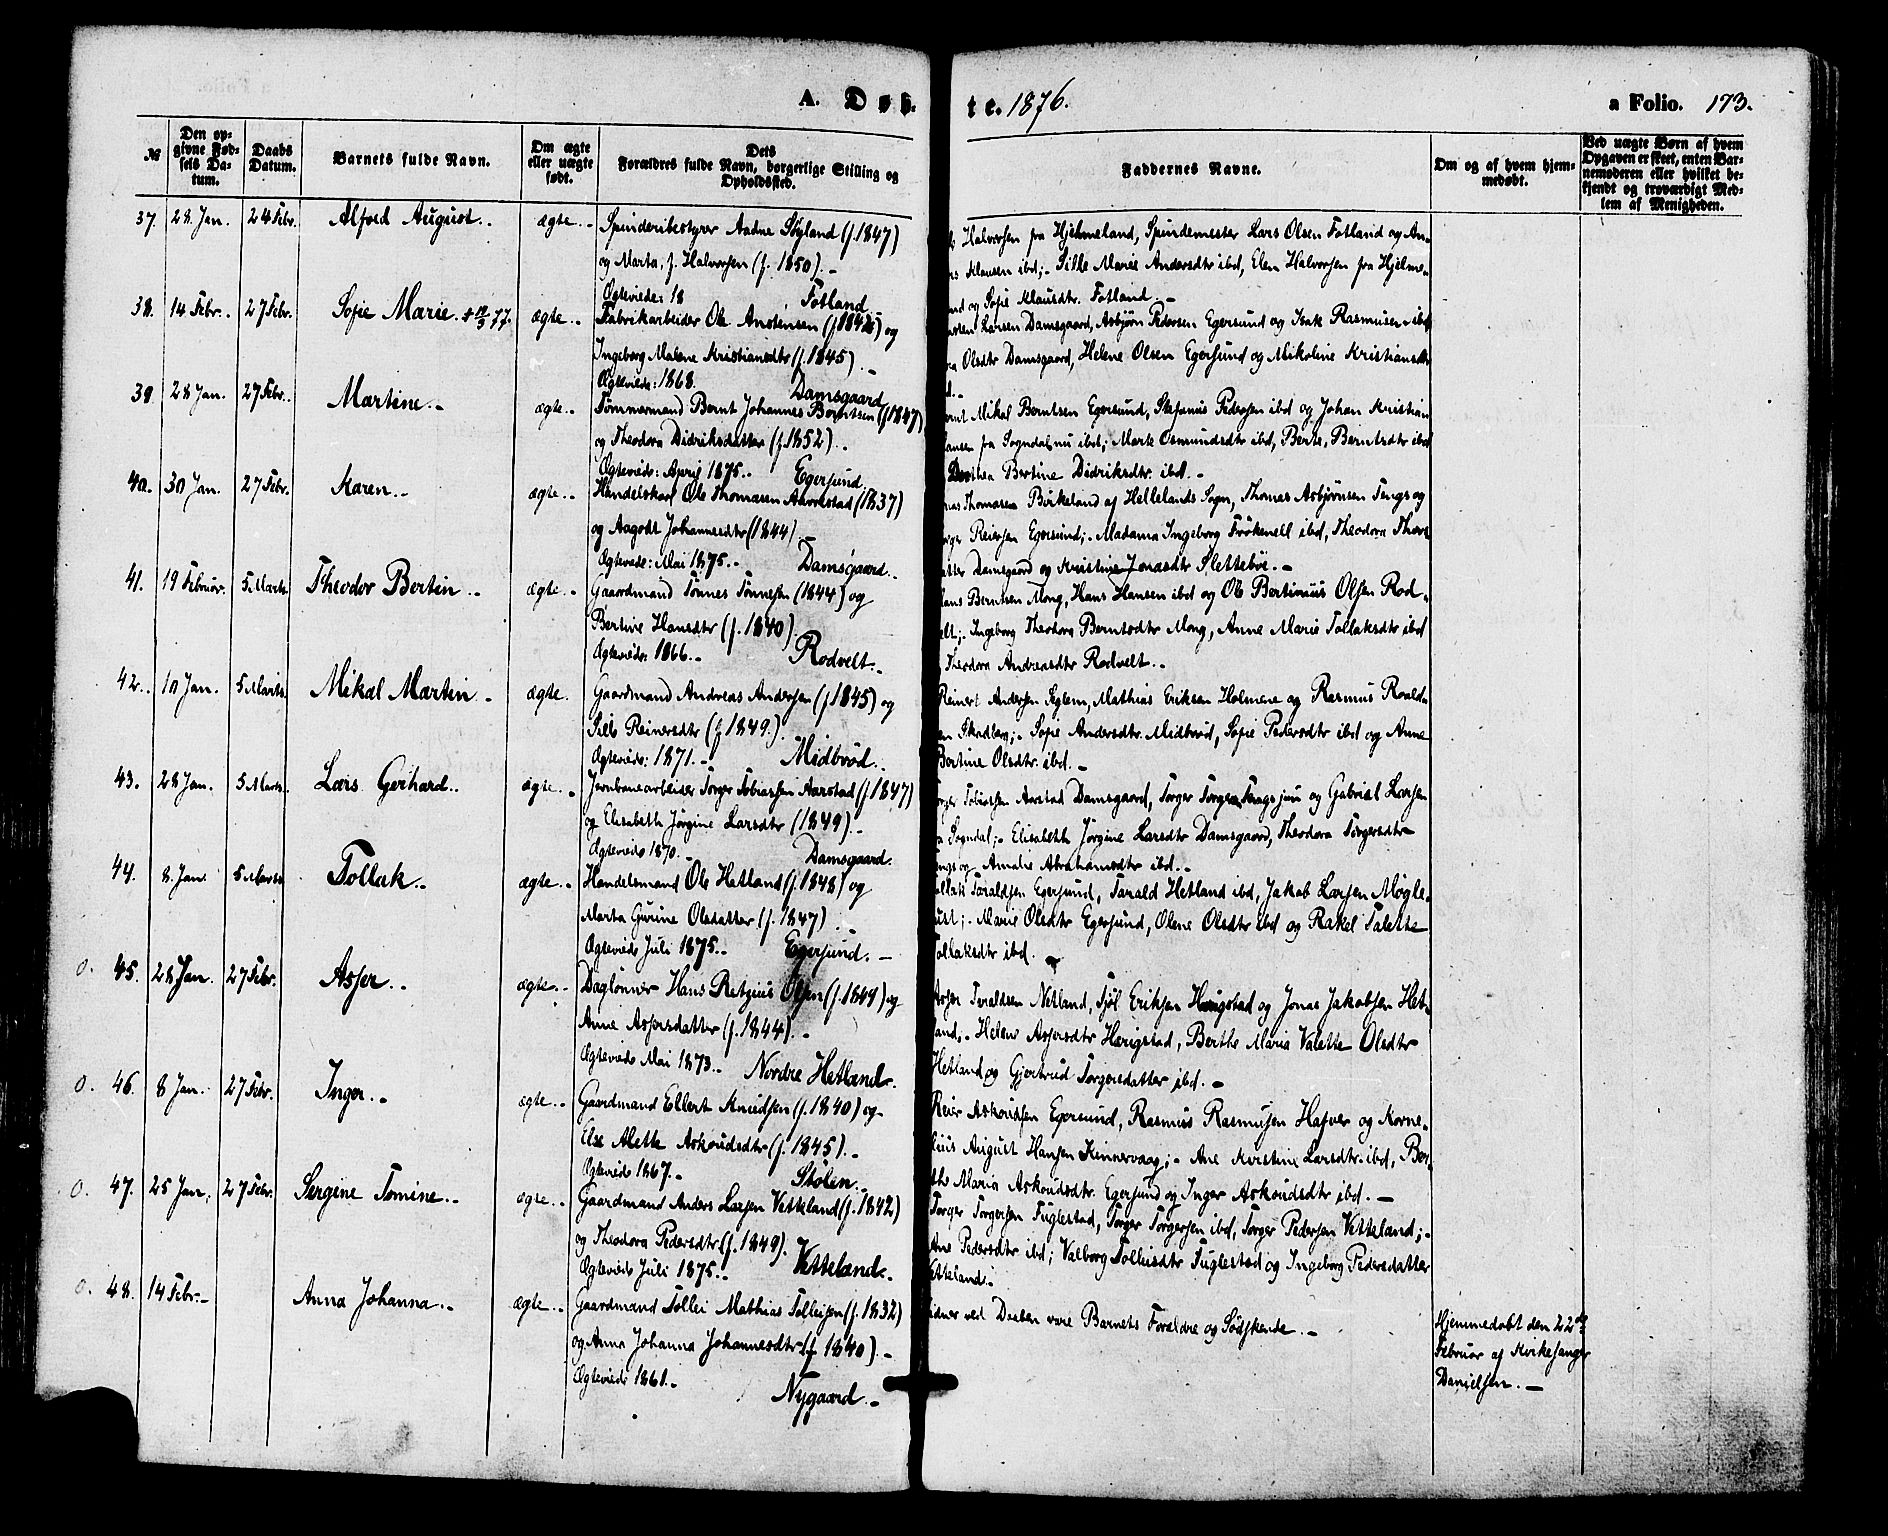 A. Døb- te. 1876.
a Folio. 173.
№ Den opgivne Fødsels Datum. Daabs Datum. Barnets fulde Navn. Om ægte eller uægte født. Dets Forældres fulde Navn, borgerlige Stilling og Opholdssted.
Faddernes Navne. Om og af hvem hjemmedøbt. Ved uægte Børn af hvem Opgaven er skeet, enten Barnemoderen eller hvilket bekjendt og troværdigt Medlem af Menigheden.
37. 28. Jan. 24 Febr. Alfred August.. ægte..
Spinderibestyrer Aadne Søyland (f. 1847)
og Marta, f. Halvorsen (f. 1850).
Ægteviede: 18 Fotland
Halvorsen fra Hjelmeland, Spindemester Lars Olsen Fotland og An-
Klausen ibd;- Silke Marie Andersdtr ibd, Elen Halvorsen fra Hjelme-
og Sofie Klausdtr. Fotland.-
38. 14 Febr.. 27 Febr. Sofie Marie. ægte..
Fabrikarbeider Ole Anstensen (f. 1842) og
Ingeborg Malene Kristiansdtr (f. 1845).
Ægteviede: 1868. Damsgaard
Larsen Damsgaard, Asbjørn Pedersen Egersund og Isak Rasmusen ibd
Olsdtr Damsgaard, Helene Olsen Egersund og Mikoline Kristiansdtr
39 28 Jan. 27 Febr.. Martine.. ægte..
Tømmermand Bernt Johannes Berntsen (f 1847)
og Theodora Didriksdatter (f. 1852)..
Ægteviede: April 1875.. Egersund.
Mikal Berntsen Egersund, Stefanus Pedersen ibd og Johan Kristian
fra Sogndal, nu ibd; Marte Osmundsdtr ibd, Berte, Berntsdtr ibd
Bertine Didriksdtr. ibd.-
40. 30 Jan. 27 Febr. Karen.. ægte..
Handelskarl Ole Thomasen Aarrestad (1837)
og Aagodt Johannesdtr (1844).
Ægteviede: Mai 1875.. Damsgaard..
Thomasen Birkeland af Hellelands Sogn, Thomas Asbjørnsen Tengs og
Reiersen Egersund;- Madama Ingeborg ibd, Theodora
Damsgaard og Kristine Jonasdtr Slettebøe.-
41. 19 Februar. 5 Marts. Theodor Bertin.. ægte..
Gaardmand Tønnes Tønnesen (1844) og
Bertine Hansdtr (f. 1840).
Ægteviede: 1866.- Rodvelt..
Berntsen Mong, Hans Hansen ibd og Ole Bertinius Olsen Rod-
velt;. Ingeborg Theodora Berntsdtr Mong, Anne Marie Tollaksdtr ibd
Theodora Andreasdtr Rodvelt..
42.. 10 Jan. 5 Marts. Mikal Martin. ægte.
Gaardmand Andreas Andersen (f 1845) og
Sille Reinersdtr (f 1849.).
Ægteviede: 1871.- Midbrød..
Reinert Andersen Eglem, Mathias Eriksen Holmene og Rasmus Roald-
sen Skadberg;- Sofie Andersdtr. Midbrød, Sofie Pedersdtr ibd og Anne
Bertine Olsdtr. ibd.-
43. 28 Jan. 5 Marts. Lars Gerhard.. ægte..
Jernbanearbeider Torger Tobiassen Aarstad (f 1847)
og Elisabeth Jørgine Larsdtr (1849)..
Ægteviede 1870. Damsgaard.
Tobiassen Aarstad Damsgaard, Torger Torgersen Tengs jun og Gabriel Larsen
Sogndal;- Elisabeth Jørgine Larsdtr Damsgaard, Theodora Torgersdtr
Tengs og Amalie Abrahamsdtr ibd..
44. 8. Jan. 5 Marts Tollak.. ægte..
Handelsmand Ole Hetland (f. 1848) og
Marta Gurine Olsdatter (f. 1847).
Ægteviede Juli 1875.. Egersund.-
Tollak Taraldsen Egersund, Tarald Hetland ibd, Jakob Larsen Mögle-
bust;. Marie Olsdtr Egersund, Olene Olsdtr ibd og Rakel Talette
Tollaksdtr ibd.
0. 45. 28 Jan. 27 Febr. Asser.. ægte..
Daglønner Hans Retzius Olsen (f. 1844) og
Anne Assersdatter (f. 1844).
Ægteviede Mai 1873.. Nordre Hetland.
Asser Taraldsen Netland, Sjöl Eriksen Herigstad og Jonas Jakobsen Het-
land,. Helene Assersdtr Herigstad, Berthe Maria Valette Olsdtr
Hetland og Gjertrud Torgersdatter ibd.-
0. 46. 8 Jan. 27 Febr. Inger.. ægte..
Gaardmand Ellert Knudsen (f. 1840) og
Else Alette Askoudsdtr (f. 1845).
Ægteviede 1867.. Stølen..
Reier Askoudsen Egersund, Rasmus Rasmusen Hafsøe og Korne-
lius August Hansen Kinnervaag;- Ane Kirstine Larsdtr. ibd, Ber-
the Maria Askoudsdtr. Egersund og Inger Askoudsdtr ibd.-
0. 47. 25 Jan. 27 Febr. Sergine Tomine.. ægte..
Gaardmand Anders Larsen Vetteland (f. 1842)
og Theodora Pedersdtr (f. 1849).
Ægteviede Juli 1875.. Vetteland.
Torger Torgersen Fuglestad, Torger Torgersen ibd, Torger Pedersen Vetteland;-
Ane Pedersdtr ibd; Valborg Tolleisdtr Fuglestad og Ingeborg Pedersdatter
Vetteland.
0. 48. 14 Febr.- Anna Johanna.. ægte..
Gaardmand Tollei Mathias Tolleisen (f. 1832)
og Anna Johanna Johannesdtr (f 1840).-
Ægteviede 1861.. Nygaard.-
Vidner ved Daaben vare Barnets Forældre og Södskende.-
Hjemmedøbt den 22de
Februar af Kirkesanger
Danielsen.-